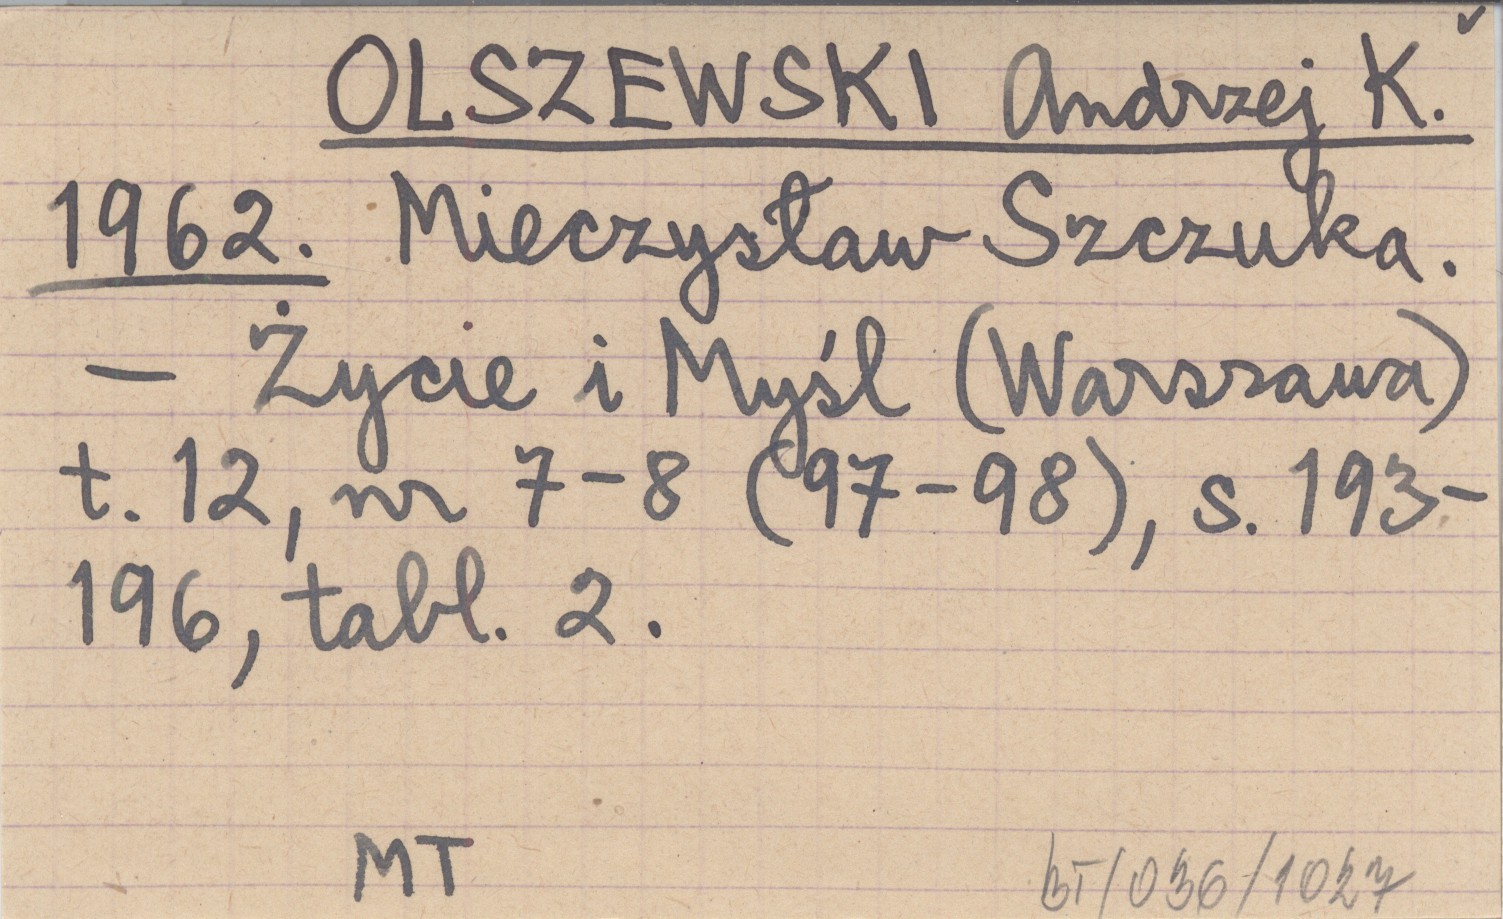 OLSZEWSKI Andrzej K.
1962. Mieczysław Szczuka.
— Życie i Myśl (Warszawa)
t. 12, nr 7-8 (97-98), s. 193-
196, tabl. 2.
MT
BT/036/1027